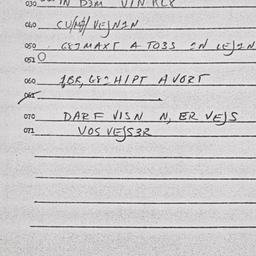 030 IN D3M VIN KLX
040 CU/M/ VEJN2N
050 GXJMAXT A TO3S 2N LEJ2N
051
060 FOR, GX2HIPT A VORT
061
070 DARF VISN N, ER VEJS
071 VOS VEJS3R